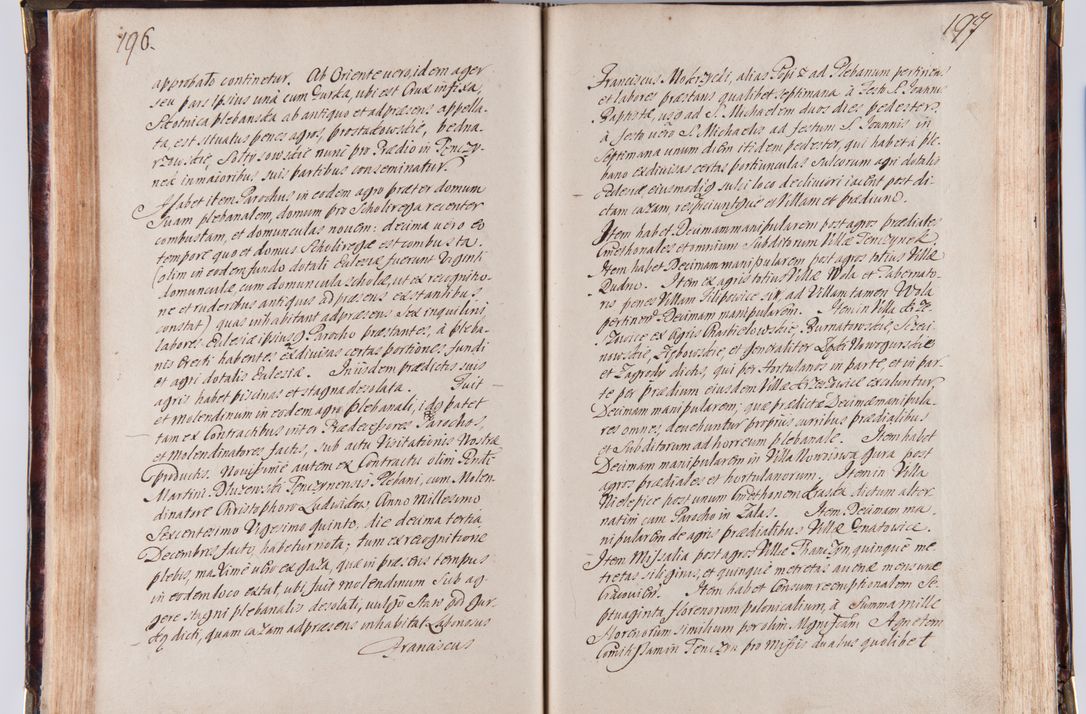 196.
approbato continetur. Ab Oriente vero, idem ager
seu pars ipsius unà cum Gurka, ubi est Crux infixa,
plebanska ab antiquo et adpræsens appella-
ta, est situatus penes agros, bedna-
rzowskie, Soltysowskie nunc pro Prædio in Tenczy-
nek in maioribus suis partibus conseminatur.
Habet item Parochus in eodem agro præter domum
suam plebanalem, domum pro Scholirega recenter
combustam, et domunculas novem: decima vero eo
tempore quo et domus Scholiregæ est combusta.
(olim in eodem fundo dotali Ecclesiæ fuerunt Viginti
domunculæ cum domuncula scholæ, ut ex recognitio-
ne et ruderibus antiquis adpræsens exstantibus
constat) quas inhabitant adpræsens sex inquilini,
labores Ecclesiæ ipsiusq Parocho præstantes, à pleba-
nis erecti habentes ex divisas certas portiones fundi
et agri dotalis Ecclesiæ. In iisdem prædictis suis
agris habet piscinas et stagna desolata. Fuit
et molendinum in eodem agro plebanali, idq patet
tam ex Contractibus inter Prædecessores Parochos,
et Molendinatores factis, sub actu Visitationis Nostræ
productis. Novissime autem ex Contractu olim
Martini Dluzewski Tenczynensis Plebani, cum Molen-
dinatore Christophoro Ladwikta, Anno Millesimo
Sexcentesimo Vigesimo quinto, die decima tertia
Decembris facto, habetur nota; tum ex recognitione
plebis, maxime vero ex gaza, quæ in præsens tempus
in eodem loco extat, ubi fuit molendinum sub ag-
gere stagni plebanalis desolati, vulgo Staw pod Gur-
ką dicti, quam cazam adpræsens inhabitat Laboriosus
Franciscus
197
Franciscus alias Popiel ad Plebanum pertinens
et labores præstans qualibet septimana à Festo S. Joannis
Baptistæ, usq ad S. Michaelem duos dies pedestres
à festo vero S. Michaelis ad festum S. Joannis in
septimana unum diem itidem pedester, qui habet a ple-
bano ex divisas certas portiunculas sulcorum agri dotalis
Ecclesiæ eiusmodiq sulci loco decliviori iacent post di-
ctam cazam, respiciuntque et Villam et prædium.
Item habet Decimam manipularem post agros prædiales
Cmethonales et omnium Subditorum Villæ Tenczynek
Item habet Decimam manipularem post agros totius Villæ
Rudno. Item ex agris totius Villæ Wola et Tabernato-
ris penes Villam Filipowice sitæ, ad Villam tamen Wola
pertinen Decimam manipularem. Item in Villa Krze-
szowice ex Agris Chachielowskie, Burnatowskie,
nowskie, Zębowskie, et generaliter Nowogurskie
et Zagrody dictis, qui per Hortulanos in parte, et in par-
te per prædium eiusdem Villæ Krzeszowice excoluntur,
Decimam manipularem; quæ prædictæ Decimæ manipula-
res omnes devehuntur propriis curribus prædialibus
et Subditorum ad horreum plebanale. Item habet
Decimam manipularem in Villa Nawoiowa gura post
agros prædiales et hortulanorum. Item in Villa
Nielepice post unum Cmethonem dictum alter-
natim cum Parocho in Zalas. Item Decimam ma-
nipularem de agris prædialibus Villæ Czatowice.
Item Missalia post agros Villæ Franczyn, quinque me-
tretas siliginis, et quinque metretas avenæ mensuræ
Cracovien. Item habet Censum reemptionalem Se-
ptuaginta florenorum polonicalium, à Summa mille
florenorum similium per olim Magnificam Agnetem
Comitissam in Tenczyn pro Missis duabus qualibet